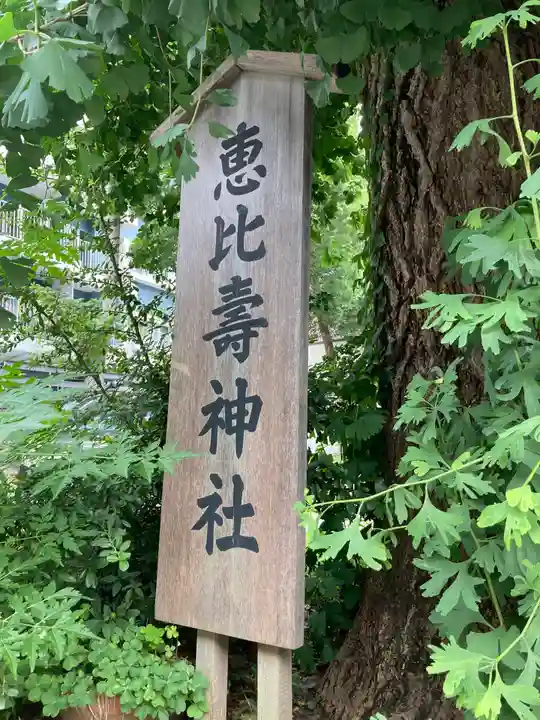 恵比壽神社